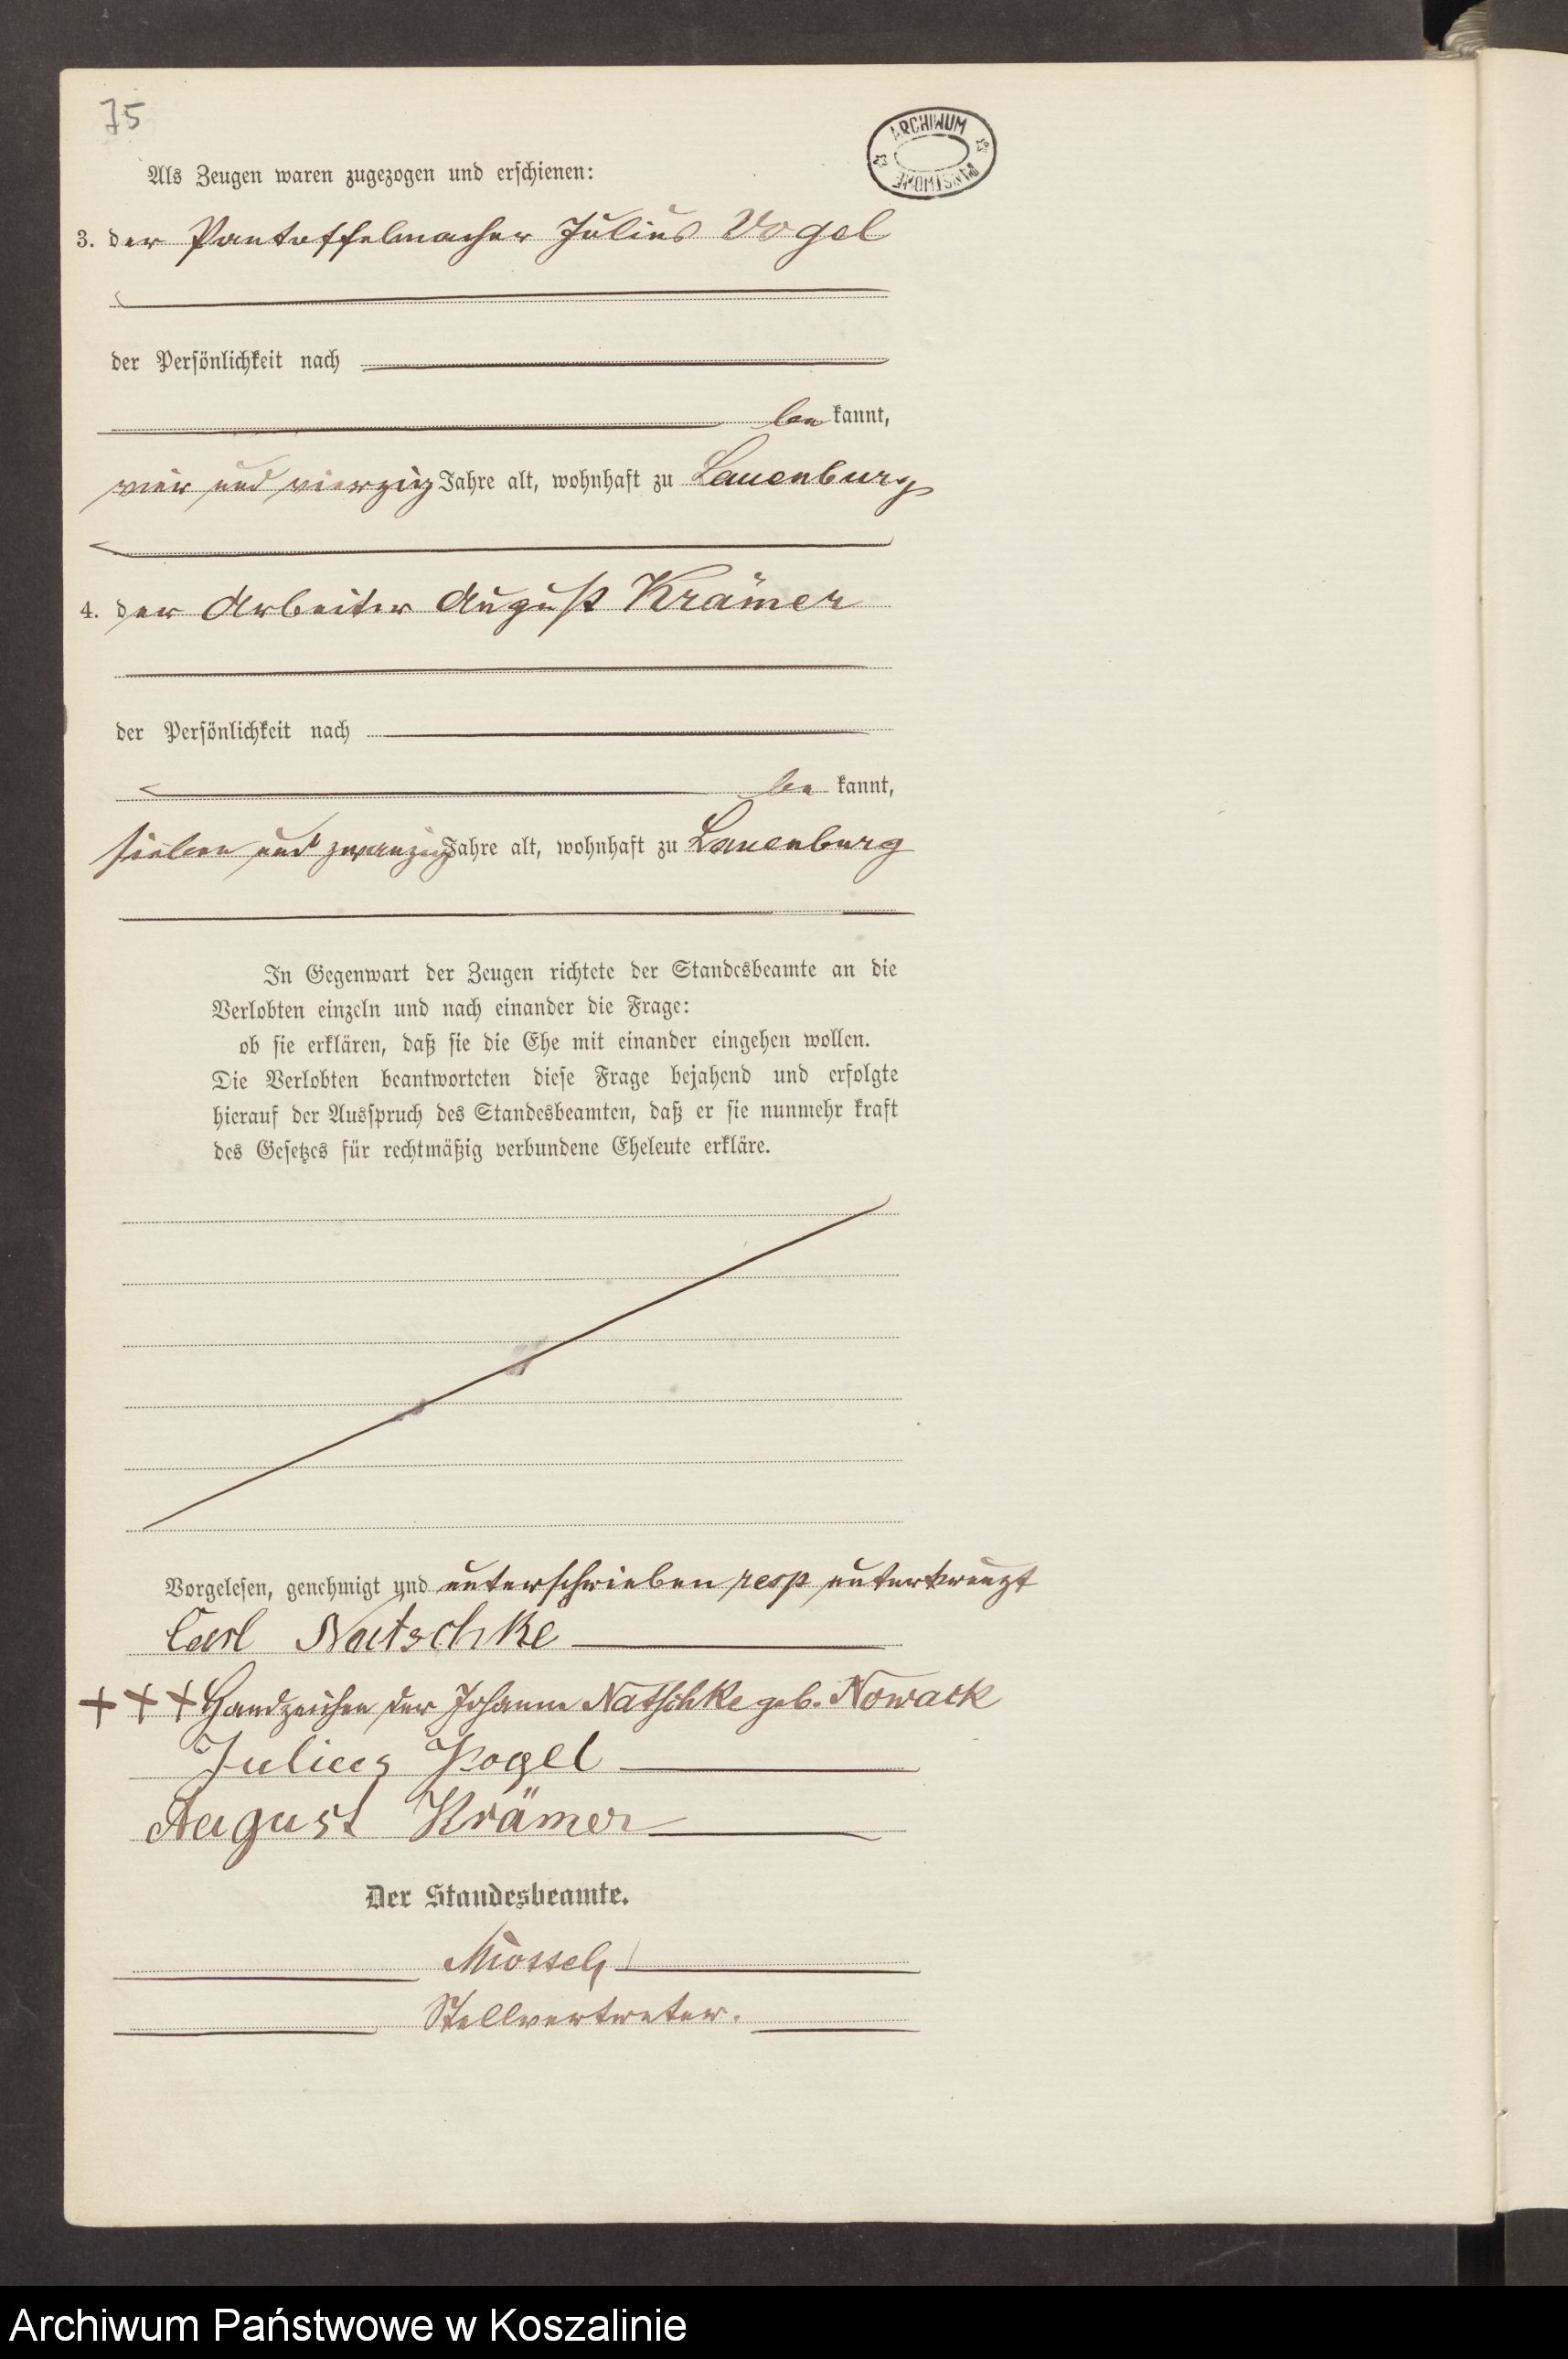 75
ARCHIWUM PAŃSTWOWE
Als Zeugen waren zugezogen und erschienen:
3. der Pantoffelmacher Julius Vogel
der Persönlichkeit nach
be kannt,
vier und vierzig Jahre alt, wohnhaft zu Lauenburg
4. der Arbeiter August Krämer
der Persönlichkeit nach
be kannt,
sieben und zwanzig Jahre alt, wohnhaft zu Lauenburg
In Gegenwart der Zeugen richtete der Standesbeamte an die
Verlobten einzeln und nach einander die Frage:
ob sie erklären, daß sie die Ehe mit einander eingehen wollen.
Die Verlobten beantworteten diese Frage bejahend und erfolgte
hierauf der Ausspruch des Standesbeamten, daß er sie nunmehr kraft
des Gesetzes für rechtmäßig verbundene Eheleute erkläre.
Vorgelesen, genehmigt und unterschrieben resp unterkreuzt
Carl Natschke
+++ Handzeichen der Johanne Natschke geb. Nowack
Julius Vogel
August Krämer
Der Standesbeamte.
Stellvertreter.
Archiwum Państwowe w Koszalinie